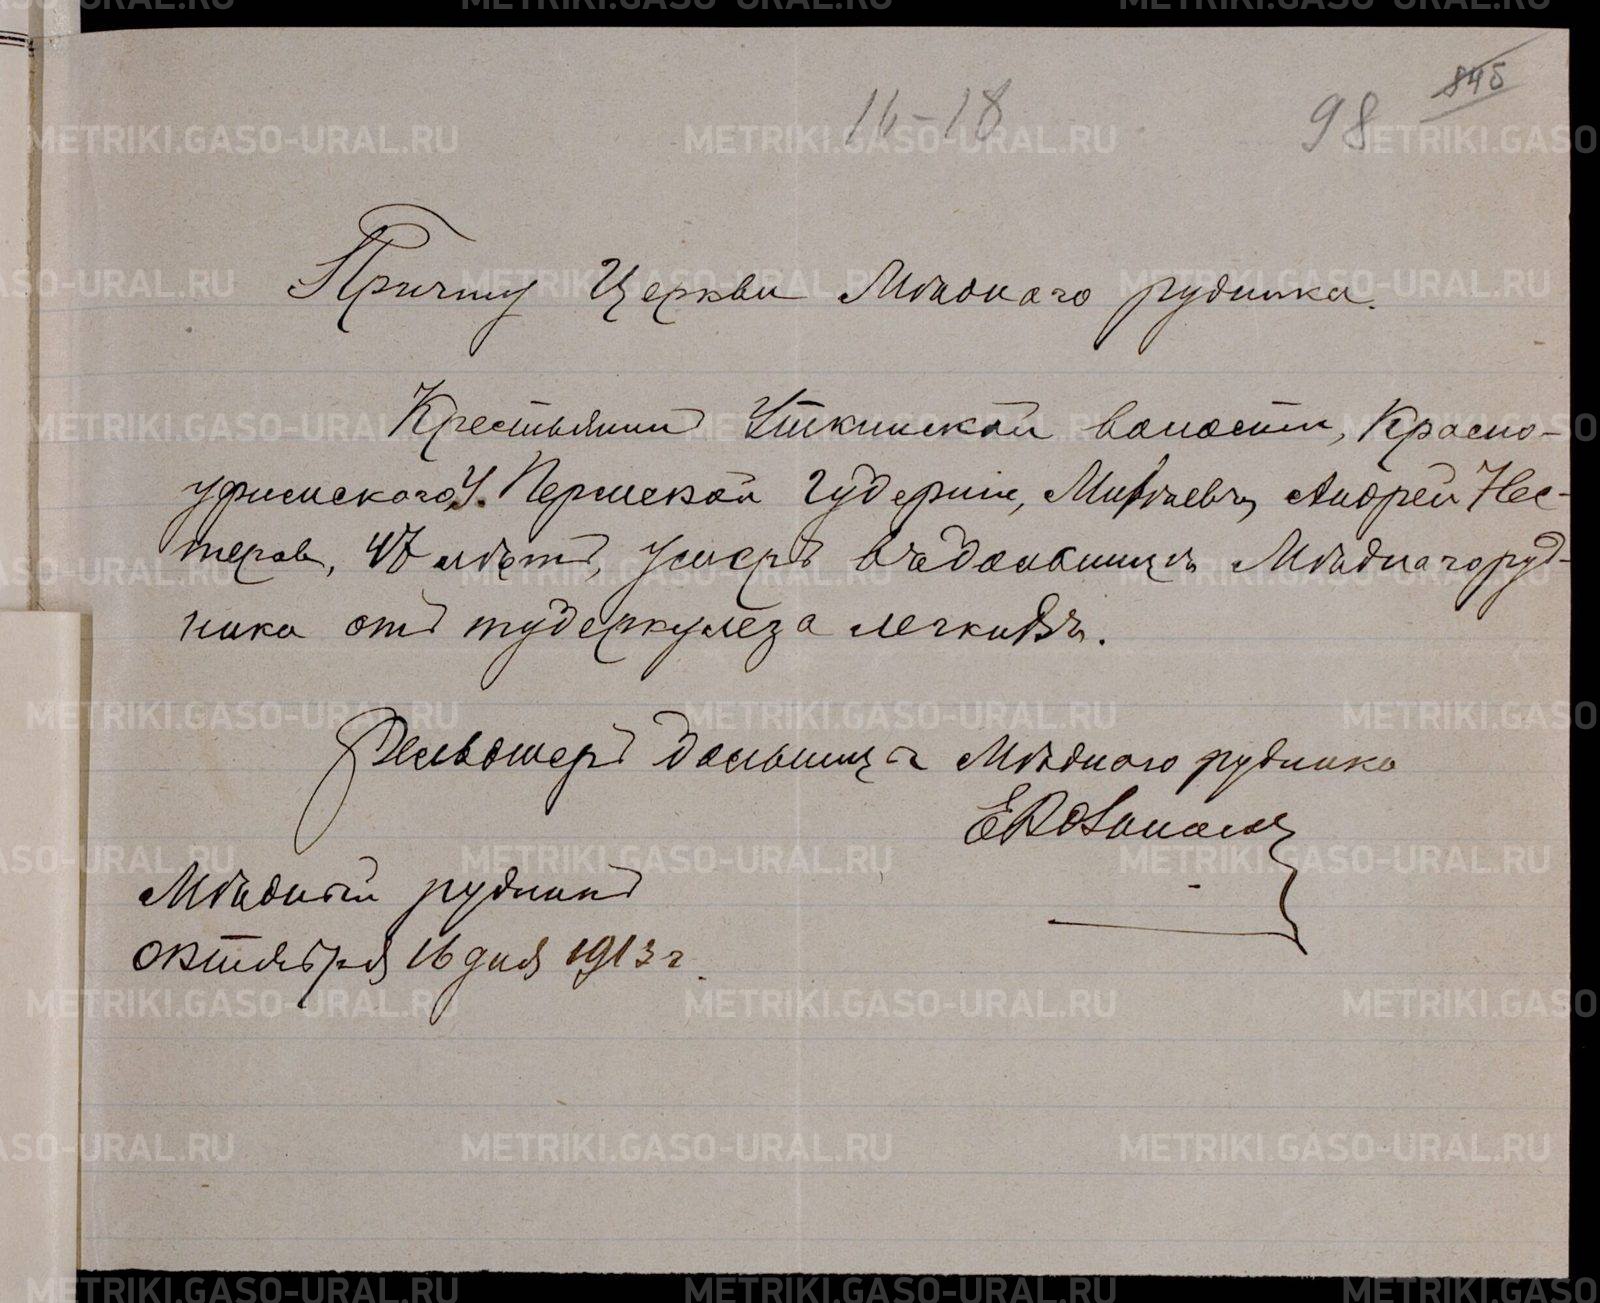 16-18 98 845
Причту Церкви Мѣднаго рудника.
Крестьянинъ Уткинской волости, Красно-
уфимскаго У. Пермской Губерніи, Андрей Нес-
теровъ, 47 лѣтъ, умеръ въ больницѣ Мѣднаго руд-
ника отъ туберкулеза легкихъ.
Фельдшеръ больницы Мѣднаго рудника
Мѣдный рудникъ
Октября 16 дня 1913 г.
METRIKI.GASO-URAL.RU